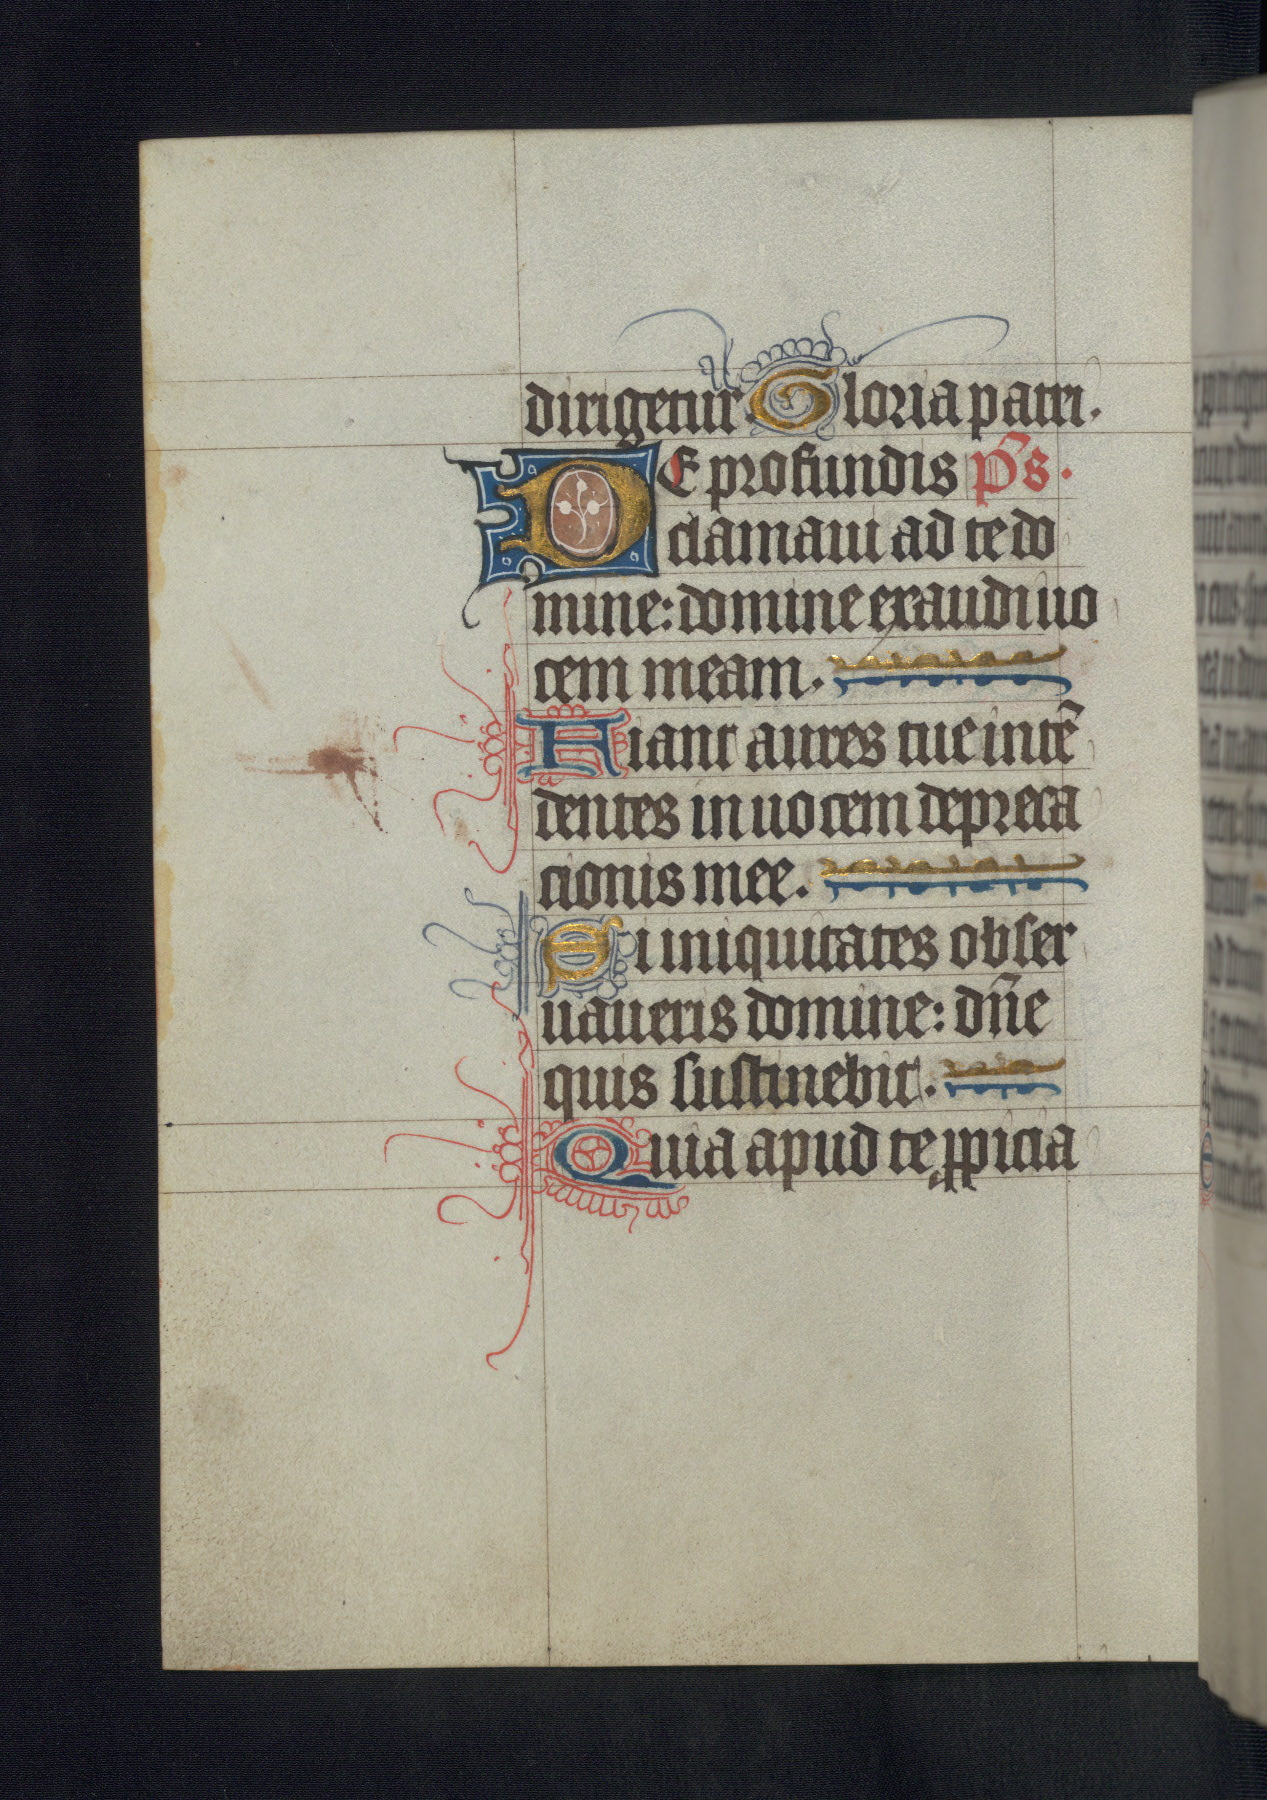 dirigetur. Gloria patri.
DE profundis p̄s.
clamaui ad te do
mine: domine exaudi uo
cem meam.
Fiant aures tue intē
dentes in uocem depreca
cionis mee.
Si iniquitates obser
uaueris domine: dn̄e
quis sustinebit.
Quia apud te ꝓpicia